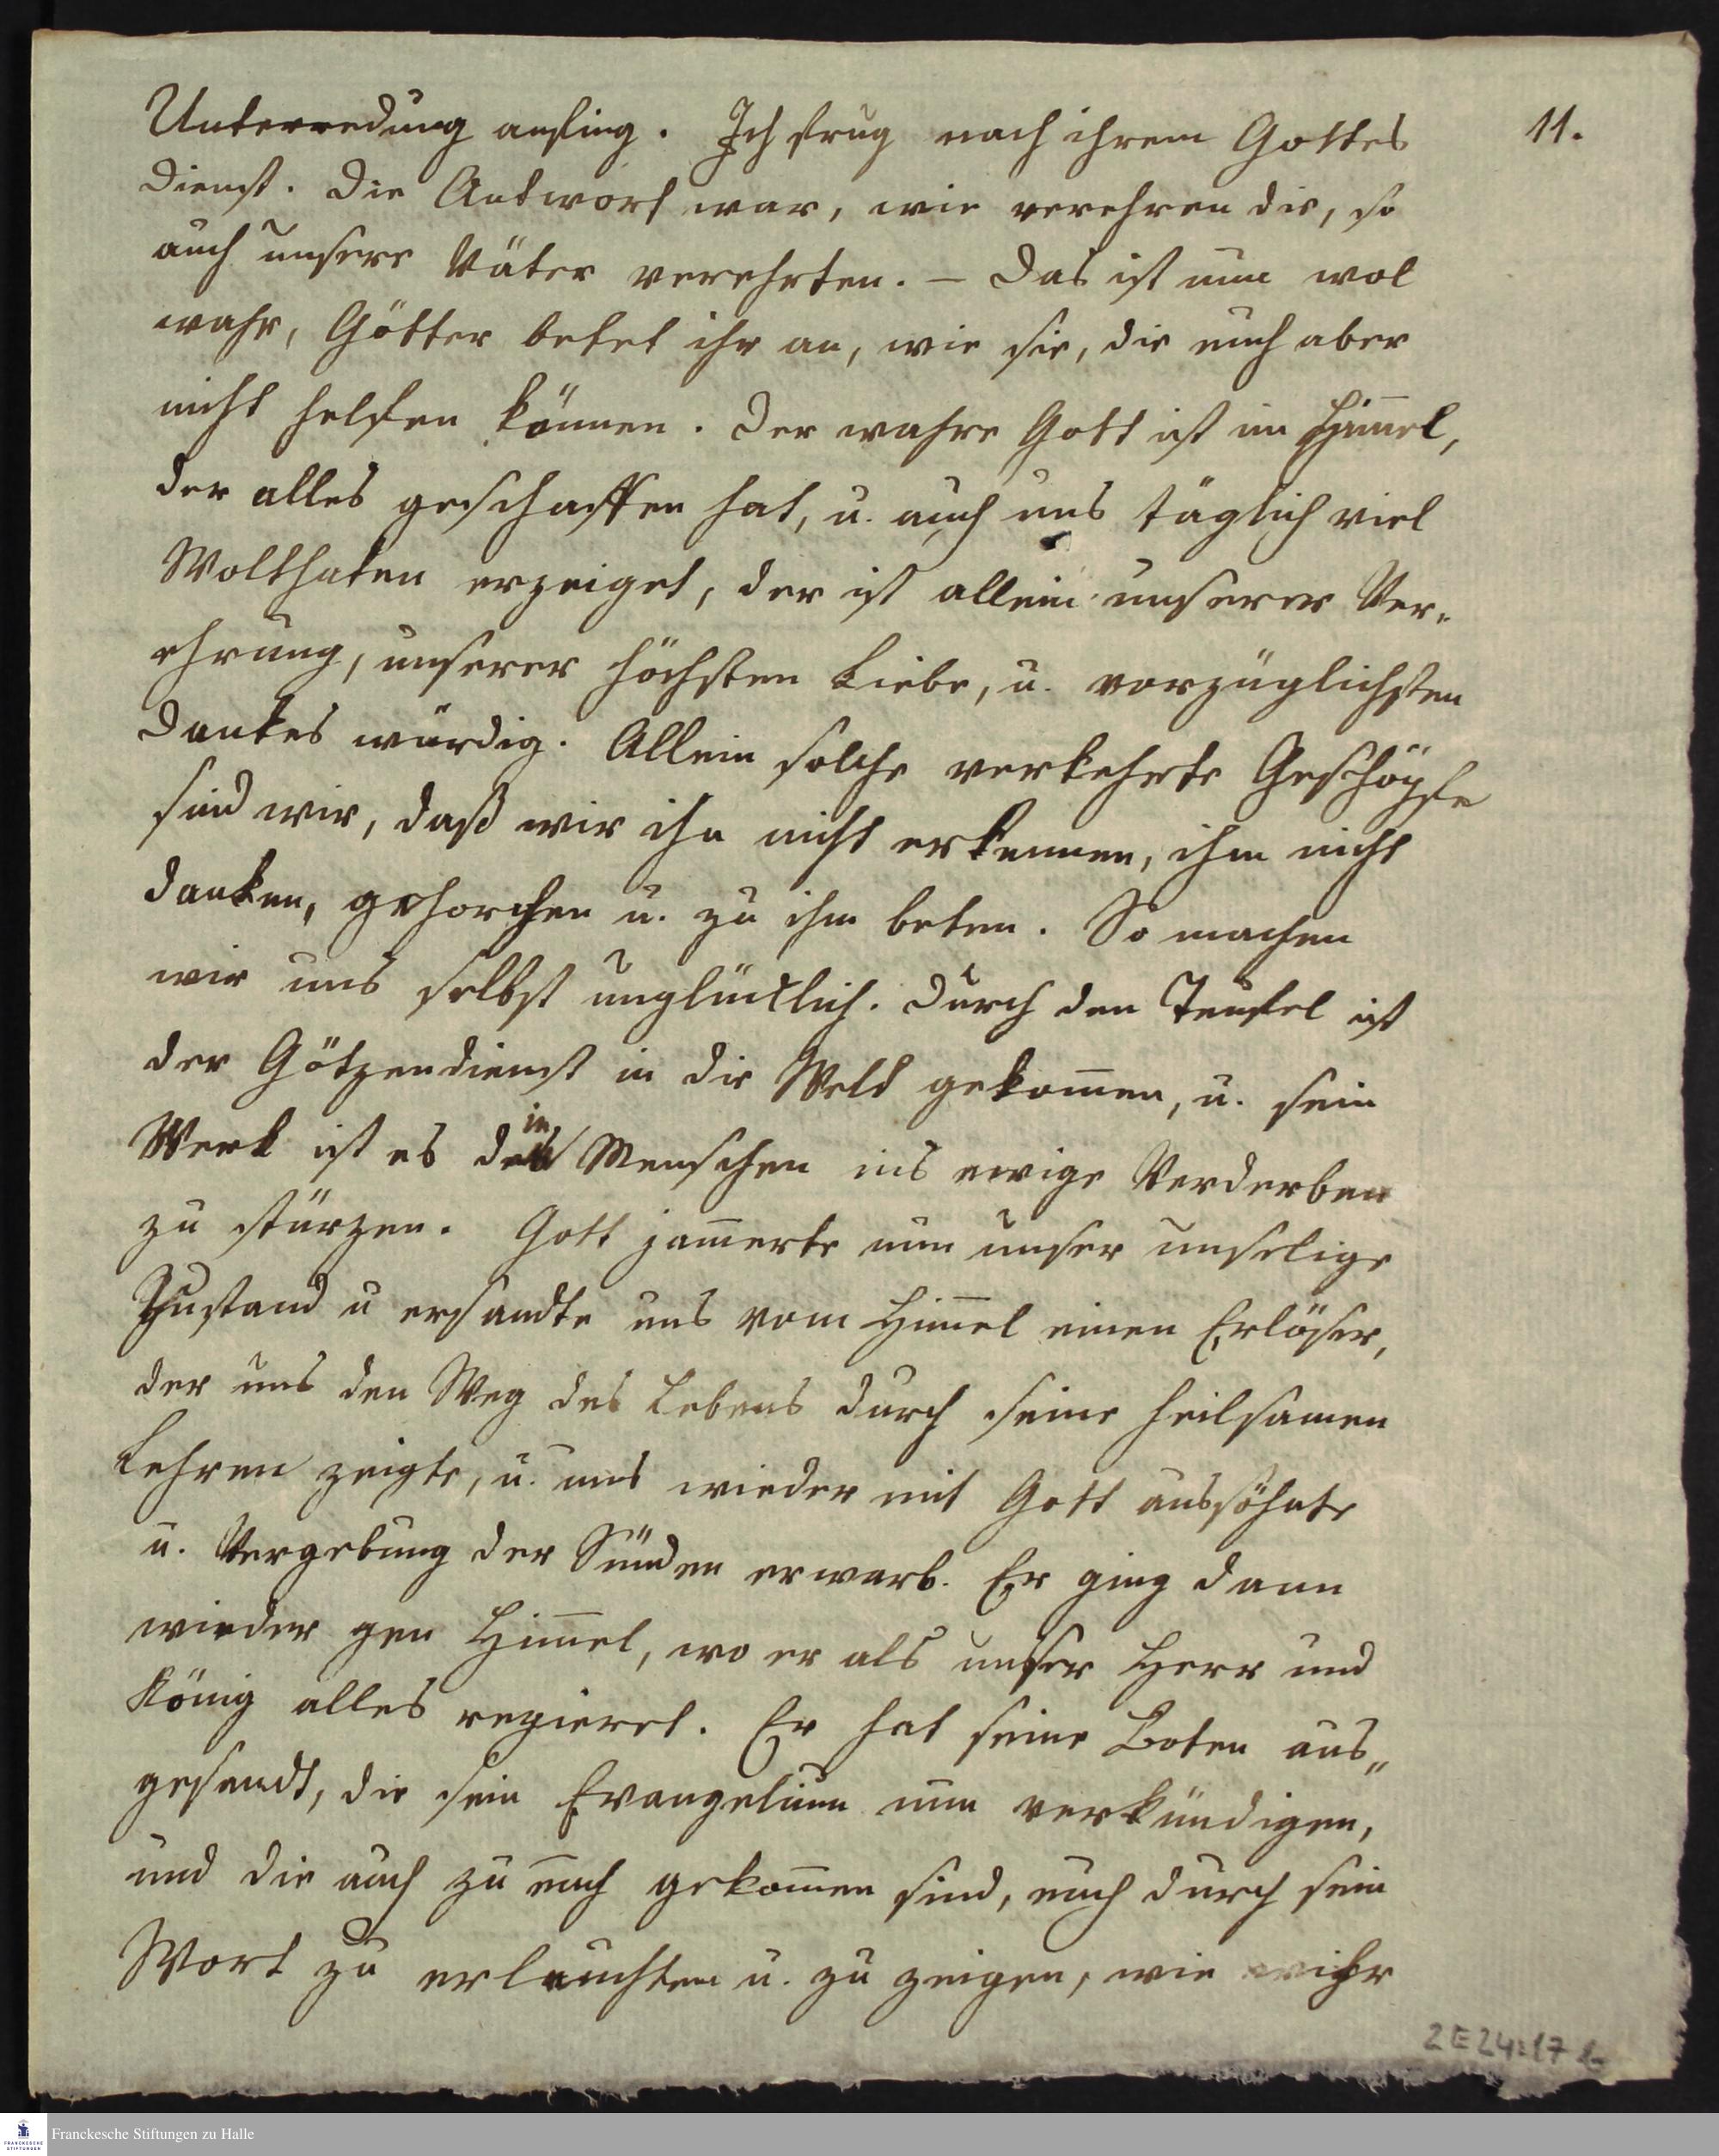 11.
Unterredung anfing. Ich frug nach ihrem Gottes
dienst. Die Antwort war, wir verehren die, so
auch unsere Väter verehrten. – Das ist nun wol
wahr, Götter betet ihr an, wie sie, die euch aber
nicht helfen können. Der wahre Gott ist im Him̅el,
der alles geschaffen hat, u. auch uns täglich viel
Wolthaten erzeiget, der ist allein unserer Ver-
ehrung, unserer höchsten Liebe, u. vorzüglichsten
Dankes würdig. Allein solche verkehrte Geschöpfe
sind wir, daß wir ihn nicht erkennen, ihm nicht
danken, gehorchen u. zu ihm beten. So machen
wir uns selbst unglücklich. Durch den Teufel ist
der Götzendienst in die Welt gekom̅en, u. sein
Werk ist es die Menschen ins ewige Verderben
zu stürzen. Gott jam̅erte nun unser unselige
Zustand u ersandte uns vom Him̅el einen Erlöser,
der uns den Weg des Lebens durch seine heilsamen
Lehren zeigte, u. uns wieder mit Gott aussöhnte
u. Vergebung der Sünden erwarb. Er ging dann
wieder gen Him̅el, wo er als unser Herr und
König alles regieret. Er hat seine Boten aus„
gesandt, die sein Evangelium nun verkündigen,
und die auch zu euch gekom̅en sind, euch durch sein
Wort zu erleuchten u. zu zeigen, wie ihr
2E24:17
Franckesche Stiftungen zu Halle
FRANCKESCHE
STIFTUNGEN